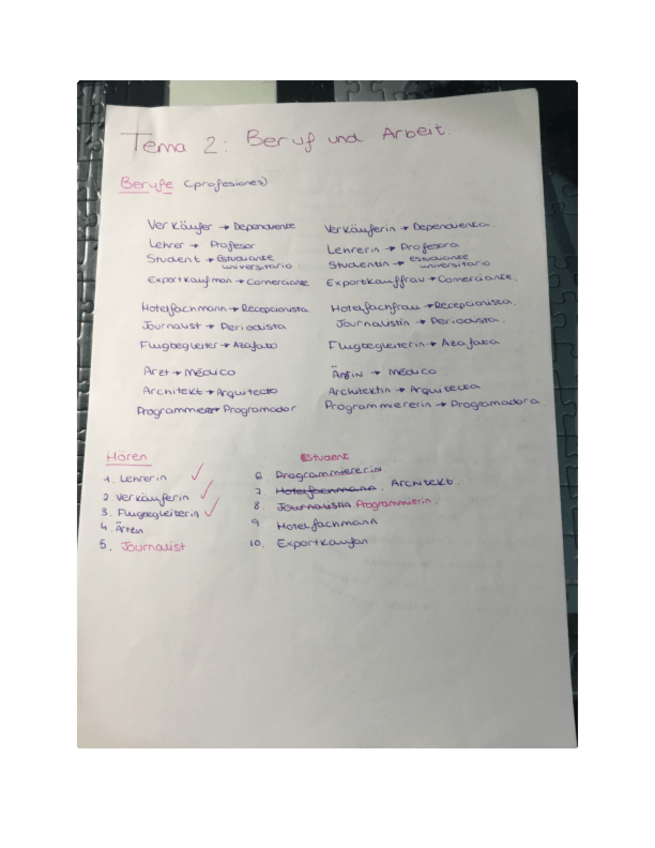 Tema 2: Beruf und Arbeit.
Berufe (profesiones)
Verkäufer → Dependiente
Lehrer → Profesor
Student → Estudiante
universitario
Exportkaufman → Comerciante
Hotelfachmann → Recepcionista
Journalist → Periodista
Flugbegleiter → Azafato
Arzt → Médico
Architekt → Arquitecto
Programmierer → Programador
Verkäuferin → Dependienta.
Lehrerin → Profesora
Studentin → estudiante
universitario
Exportkauffrau → Comerciante.
Hotelfachfrau → Recepcionista.
Journalistin → Periodista.
Flugbegleiterin → Azafata
→ Médico
Architektin → Arquitecta
Programmiererin → Programadora.
Hören
1. Lehrerin
2. Verkäuferin
3. Flugbegleiterin
4.
5. Journalist
Student
6.
7. Hotelfachmann. Architekt.
8. Journalistin Programmierin.
9. Hotelfachmann
10.